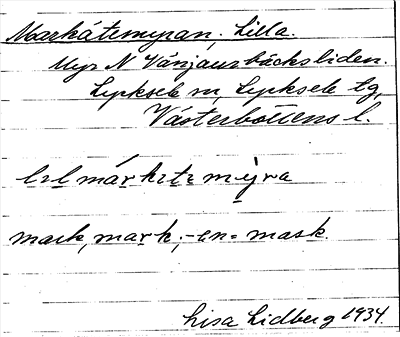 Markåtemyran, Lilla.
Myr N Vänjaurbäcksliden.
Lycksele sn, Lycksele tg,
Västerbottens l.
mark, mark, -en = mask.
Lisa Lidberg 1934.